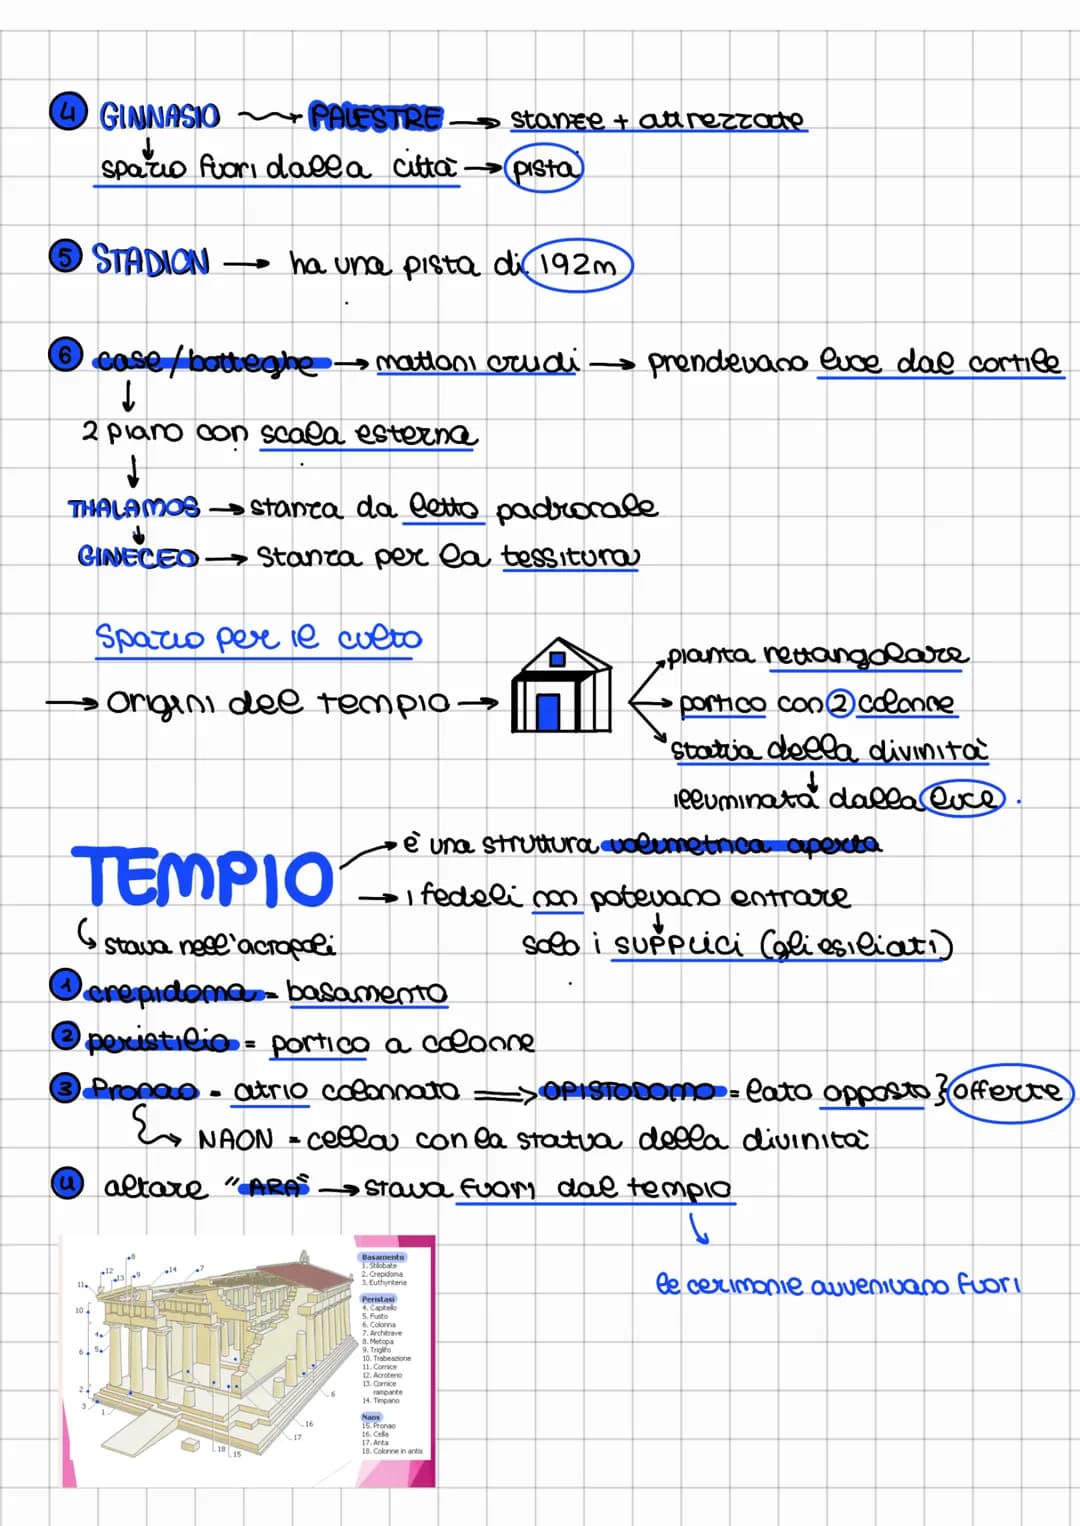 4 GINNASIO → PALESTRE → stanze + attrezzate
spazio fuori dalla città → pista
5 STADION → ha una pista di 192m
6 case/botteghe → mattoni crudi → prendevano luce dal cortile
2 piano con scala esterna
THALAMOS → stanza da letto padronale
GINECEO → stanza per la tessitura
Spazio per il culto
→ origini del tempio →
pianta rettangolare
portico con 2 colonne
statua della divinità
illuminata dalla luce.
TEMPIO
→ è una struttura volumetrica aperta
→ i fedeli non potevano entrare
solo i supplici (gli esiliati)
stava nell'acropoli
1 crepidoma = basamento
2 peristilio = portico a colonne
3 Pronao = atrio colonnato ⇒ OPISTODOMO = lato opposto } offerte
→ NAON = cella con la statua della divinità
4 altare "ARA" → stava fuori dal tempio
le cerimonie avvenivano fuori
Basamento
1. Stilobate
2. Crepidoma
3. Euthynteria
Peristasi
4. Capitello
5. Fusto
6. Colonna
7. Architrave
8. Metopa
9. Triglifo
10. Trabeazione
11. Cornice
12. Acroterio
13. Cornice
rampante
14. Timpano
Naos
15. Pronao
16. Cella
17. Anta
18. Colonne in antis
8
12
13
9
14
7
11
10
4
6
5
2
3
1
6
16
17
18
15